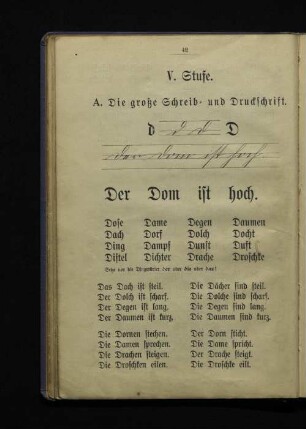 48
V. Stufe.
A. Die große Schreib- und Druckschrift.
d d D D
der Dom ist hoch.
Der Dom ist hoch.
Dose Dame Degen Daumen
Dach Dorf Dolch Docht
Ding Dampf Dunst Duft
Distel Dichter Drache Droschke
Setze vor die Wörter der oder die oder das!
Das Dach ist steil. Die Dächer sind steil.
Der Dolch ist scharf. Die Dolche sind scharf.
Der Degen ist lang. Die Degen sind lang.
Der Daumen ist kurz. Die Daumen sind kurz.
Die Dornen stechen. Der Dorn sticht.
Die Damen sprechen. Die Dame spricht.
Die Drachen steigen. Der Drache steigt.
Die Droschken eilen. Die Droschke eilt.